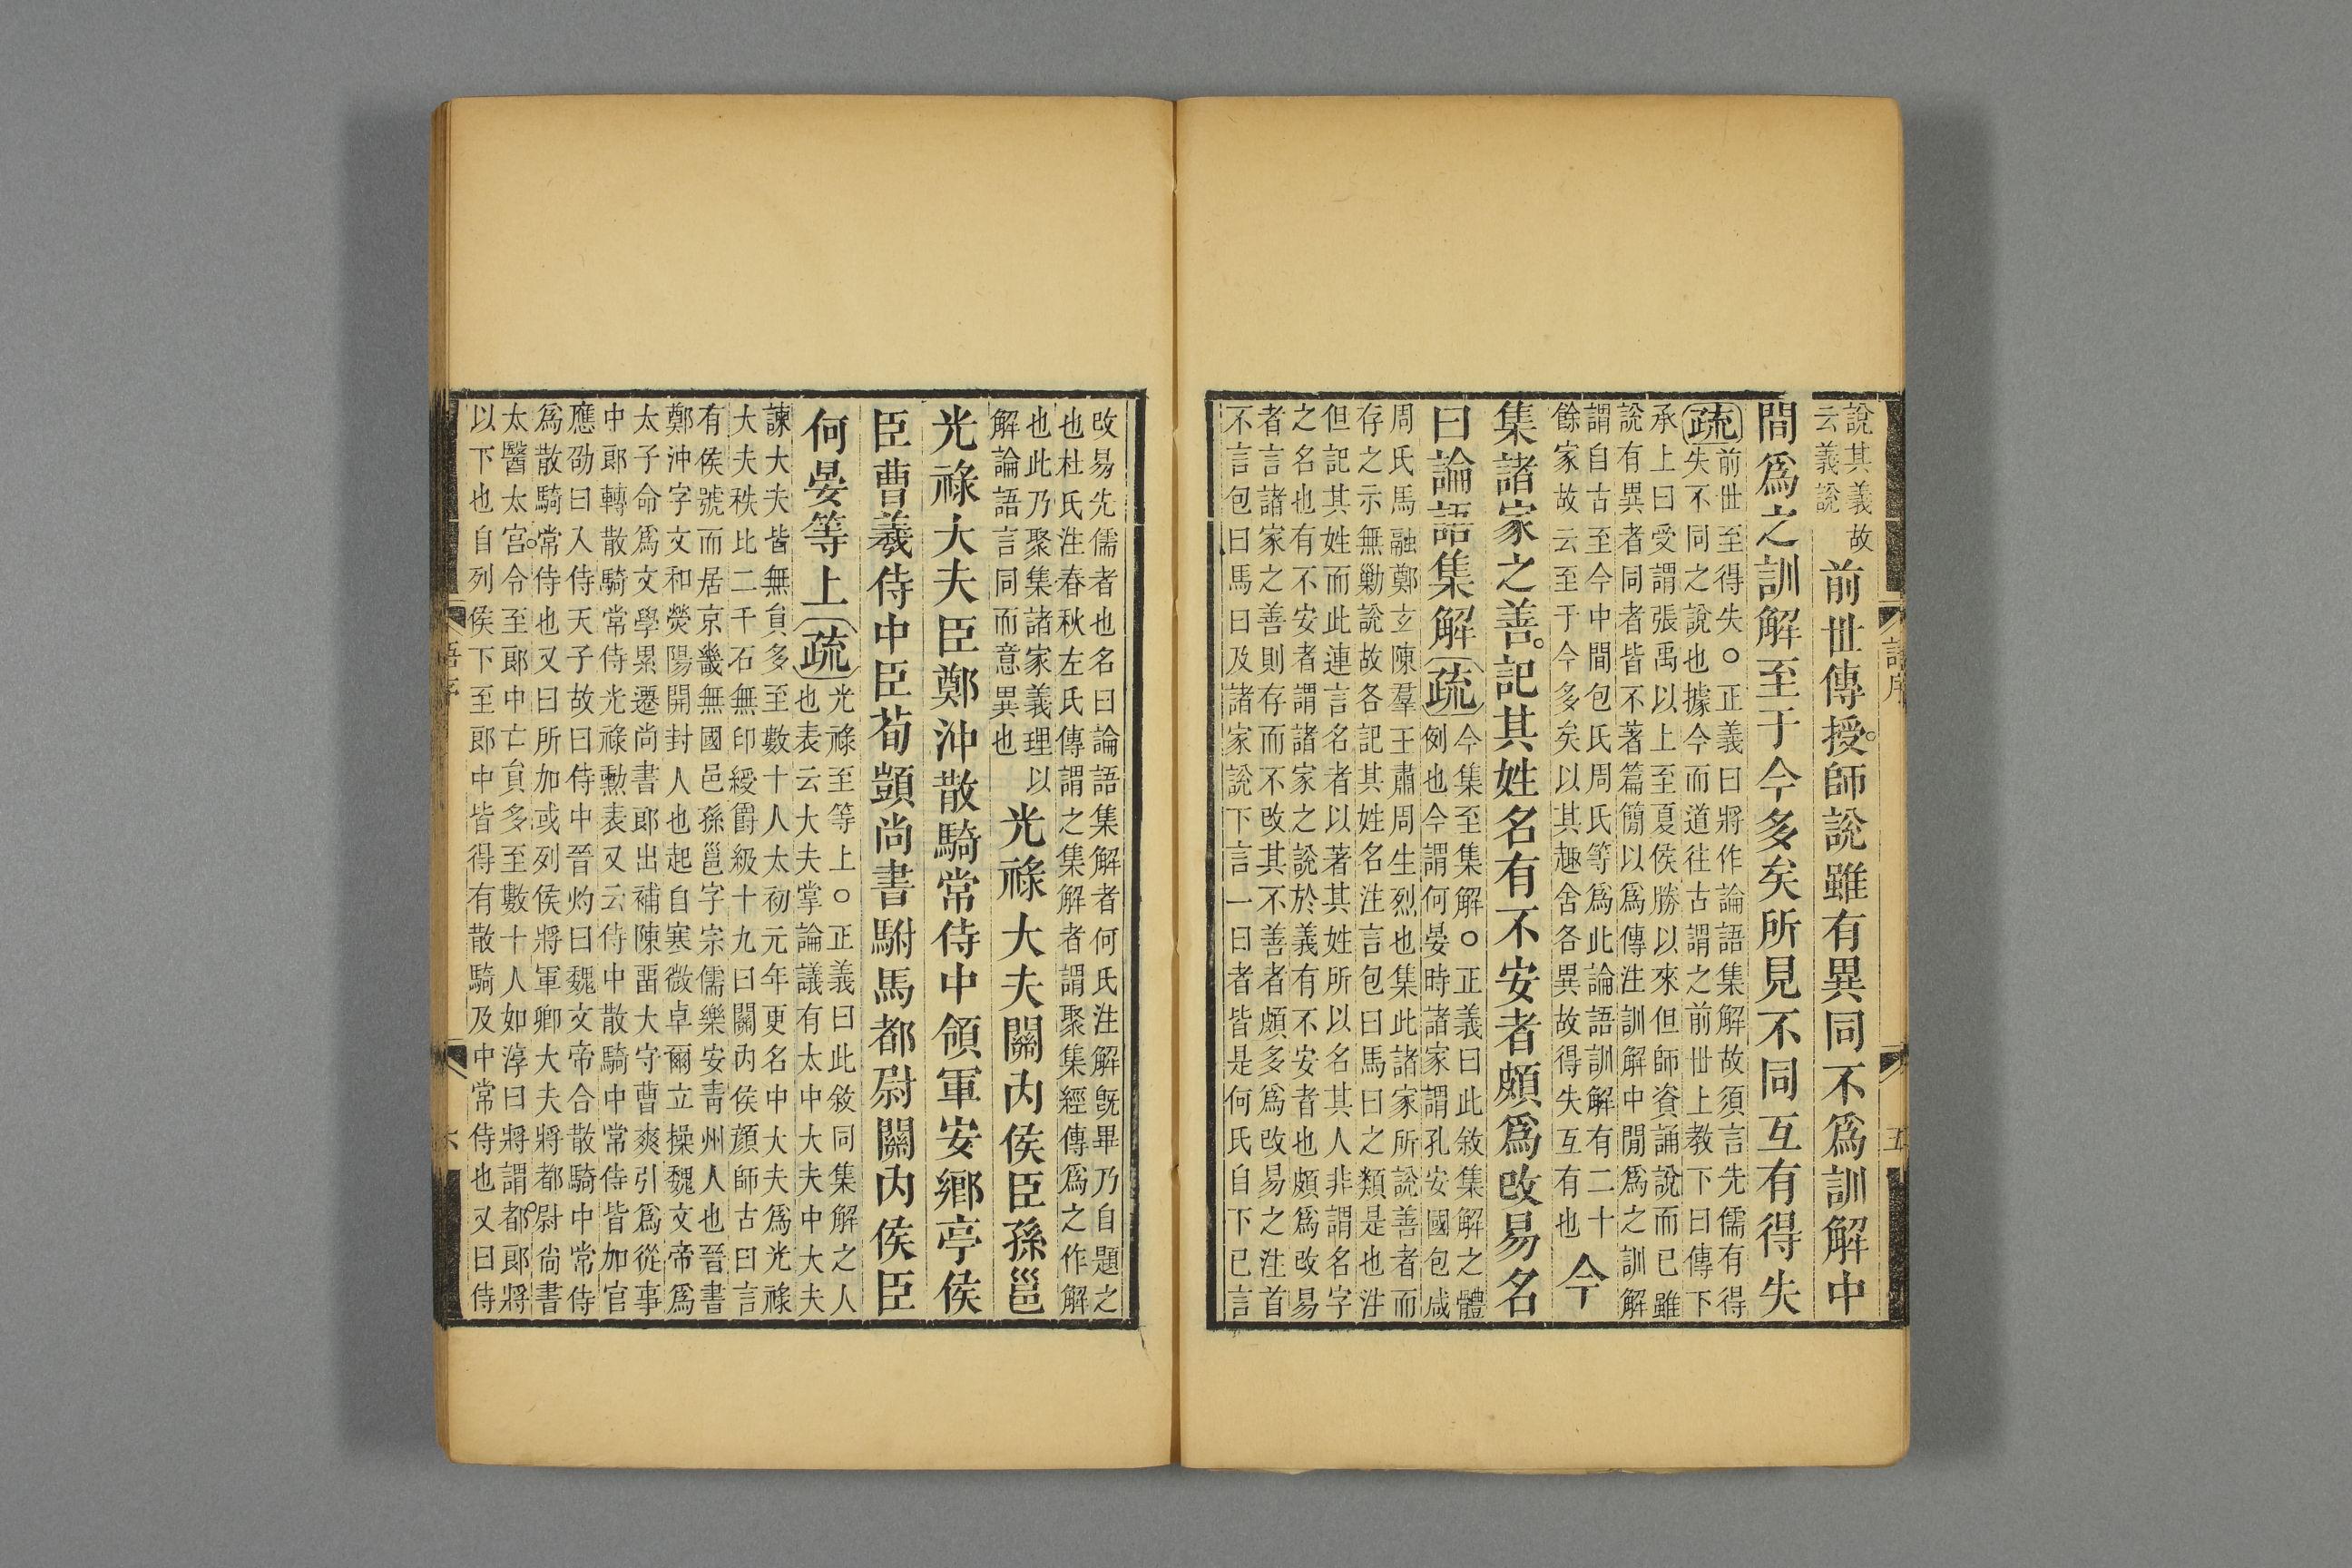 說其義故
云義說
前丗傳授師說雖有異同不爲訓解中
間爲之訓解至于今多矣所見不同互有得失
疏
前丗至得失○正義曰將作論語集解故須言先儒有得
失不同之說也據今而道往古謂之前丗上教下曰傳下
承上曰受謂張禹以上至夏侯勝以來但師資誦說而已雖
說有異者同者皆不著篇簡以爲傳注訓解中間爲之訓解
謂自古至今中間包氏周氏等爲此論語訓解有二十
餘家故云至于今多矣以其趣舍各異故得失互有也
今
集諸家之善記其姓名有不安者頗爲改易名
曰論語集解
疏
今集至集解○正義曰此敘集解之體
例也今謂何晏時諸家謂孔安國包咸
周氏馬融鄭玄陳羣王肅周生烈也集此諸家所說善者而
存之示無勦說故各記其姓名注言包曰馬曰之類是也注
但記其姓而此連言名者以著其姓所以名其人非謂名字
之名也有不安者謂諸家之說於義有不安者也頗爲改易
者言諸家之善則存而不改其不善者頗多爲改易之注首
不言包曰馬曰及諸家說下言一曰者皆是何氏自下已言
改易先儒者也名曰論語集解者何氏注解既畢乃自題之
也杜氏注春秋左氏傳謂之集解者謂聚集經傳爲之作解
也此乃聚集諸家義理以
解論語言同而意異也
光祿大夫關內侯臣孫邕
光祿大夫臣鄭沖散騎常侍中領軍安鄉亭侯
臣曹羲侍中臣荀顗尚書駙馬都尉關內侯臣
何晏等上
疏
光祿至等上○正義曰此敘同集解之人
也表云大夫掌論議有太中大夫中大夫
諫大夫皆無員多至數十人太初元年更名中大夫爲光祿
大夫秩比二千石無印綬爵級十九曰關內侯顔師古曰言
有侯號而居京畿無國邑孫邕字宗儒樂安靑州人也晉書
鄭沖字文和熒陽開封人也起自寒微卓爾立操魏文帝爲
太子命爲文學累遷尚書郎出補陳畱大守曹爽引爲從事
中郎轉散騎常侍光祿勳表又云侍中散騎中常侍皆加官
應劭曰入侍天子故曰侍中晉灼曰魏文帝合散騎中常侍
爲散騎常侍也又曰所加或列侯將軍卿大夫將都尉尚書
太醫太官令至郎中亡員多至數十人如淳曰將謂都郎將
以下也自列侯下至郎中皆得有散騎及中常侍也又曰侍